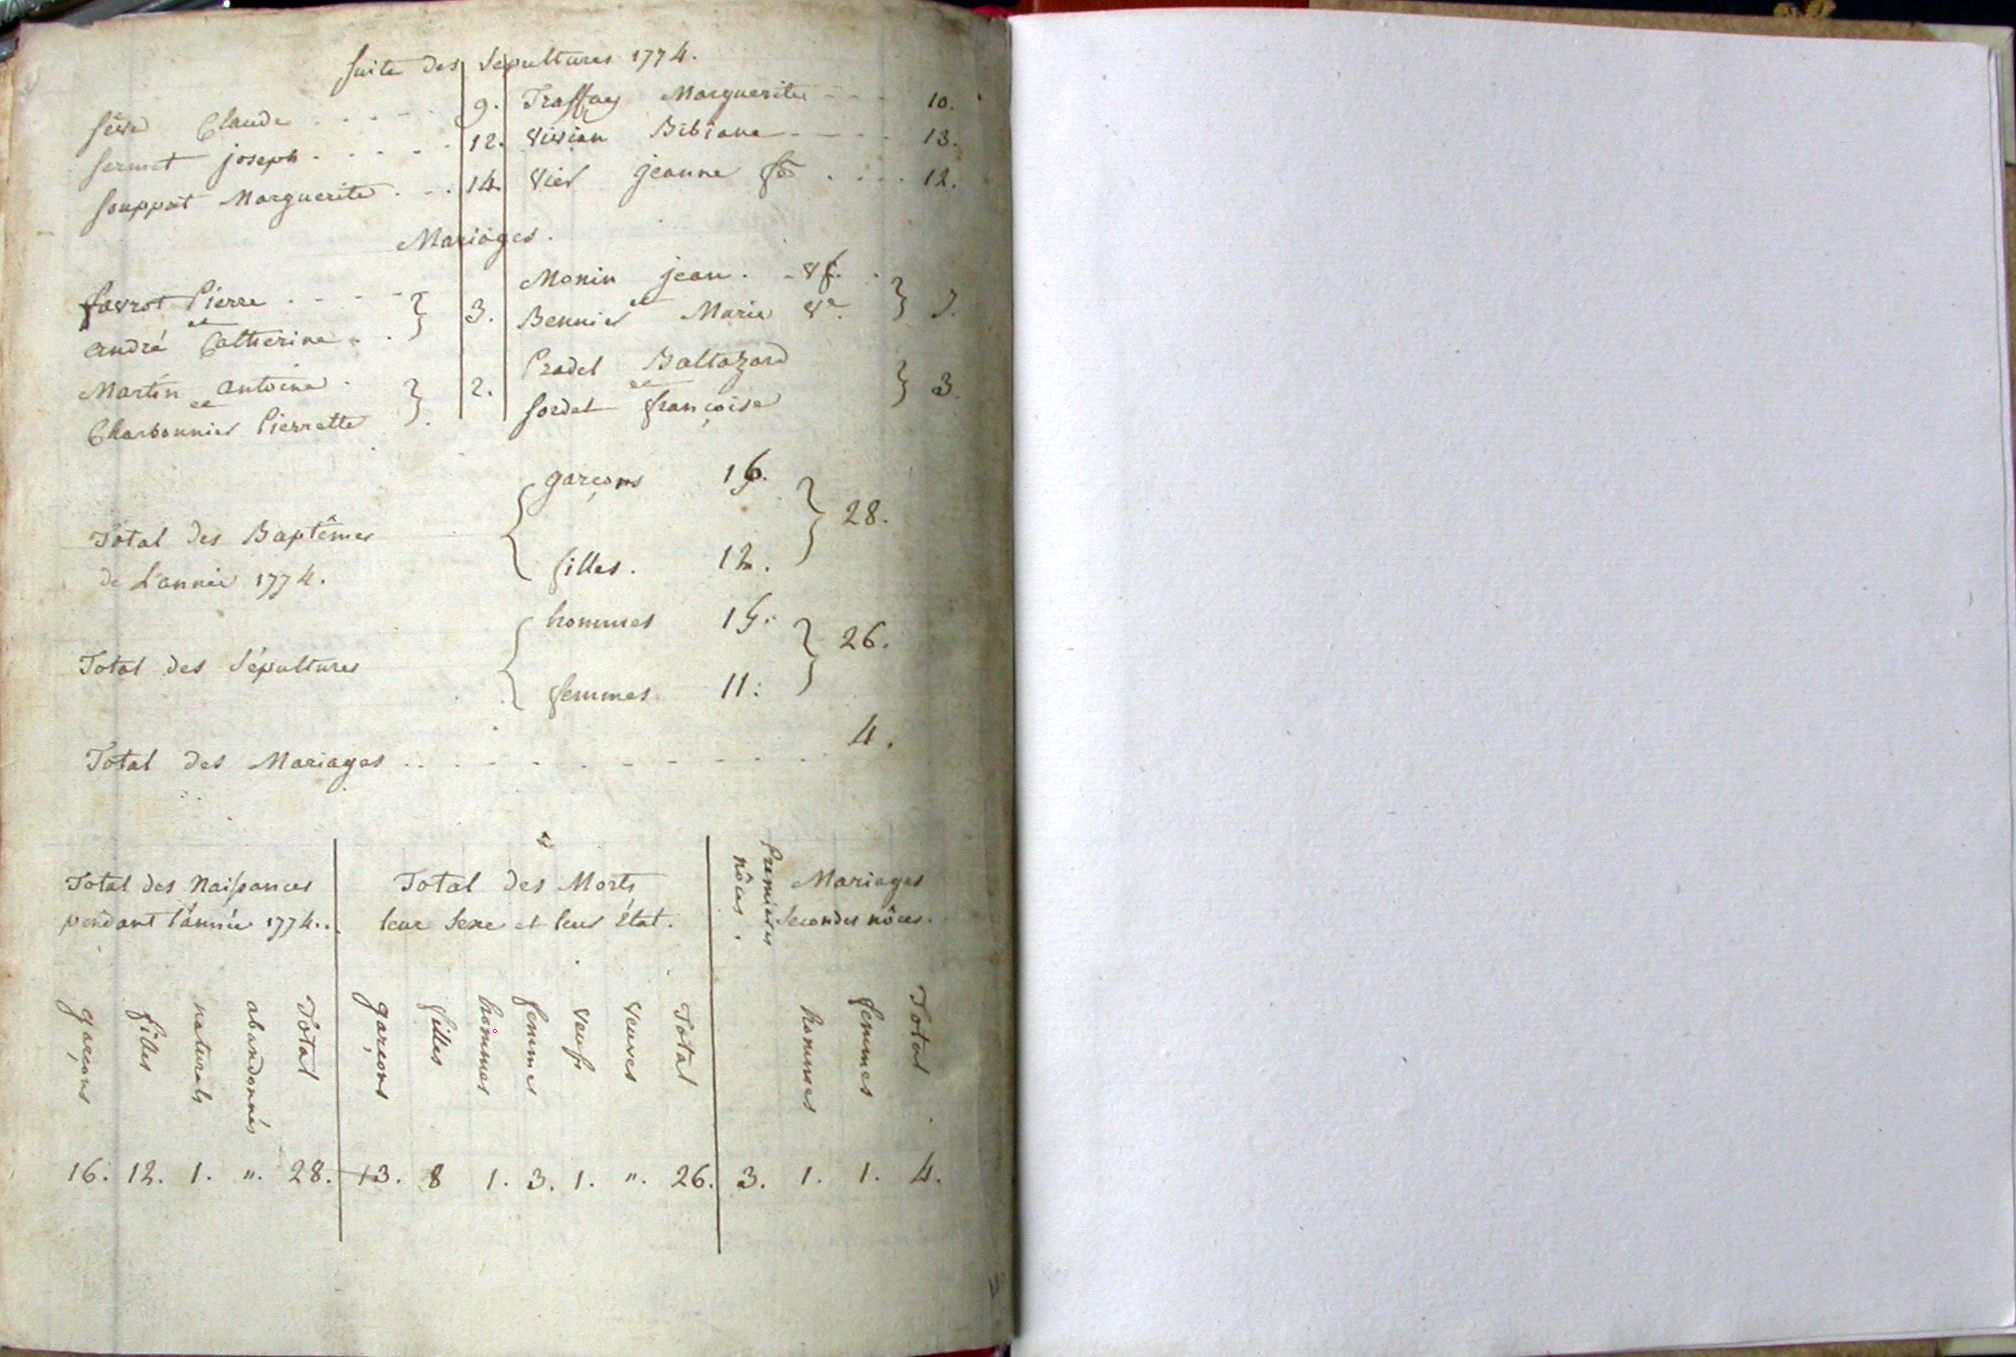 Suite des Sepultures 1774.
Sève Claude . . . . . 9.
Sermet joseph . . . . . 12.
Souppat Marguerite . . . 14.
Traffay Marguerite - - - 10.
Vivian Bibiane - - - - 13.
Vier jeanne . . . . 12.
Mariages.
favrot Pierre . - - - -
et
André Catherine . . } 3.
Martin antoine .
et
Charbonnier Pierrette } . 2.
Monin jean . - vf. .
et
Bennier Marie ve. }
Pradel Baltazard
et
Sordet françoise } 3.
garçons 16.
Total des Baptêmes { } 28.
de L'année 1774.
filles . 12.
hommes 15:
Total des Sépultures { } 26.
femmes 11:
Total des Mariages . . . - - - - - - - . 4.
Total des Naissances
pendant l'année 1774..
Total des Morts
leur Sexe et leur État.
Premieres
nôces.
Mariages
Secondes nôces.
garçons filles naturels abandonnés Total garçons filles hommes femmes veufs veuves Total hommes femmes Total
16. 12. 1. ". 28. 13. 8 1. 3. 1. ". 26. 3. 1. 1. 4.